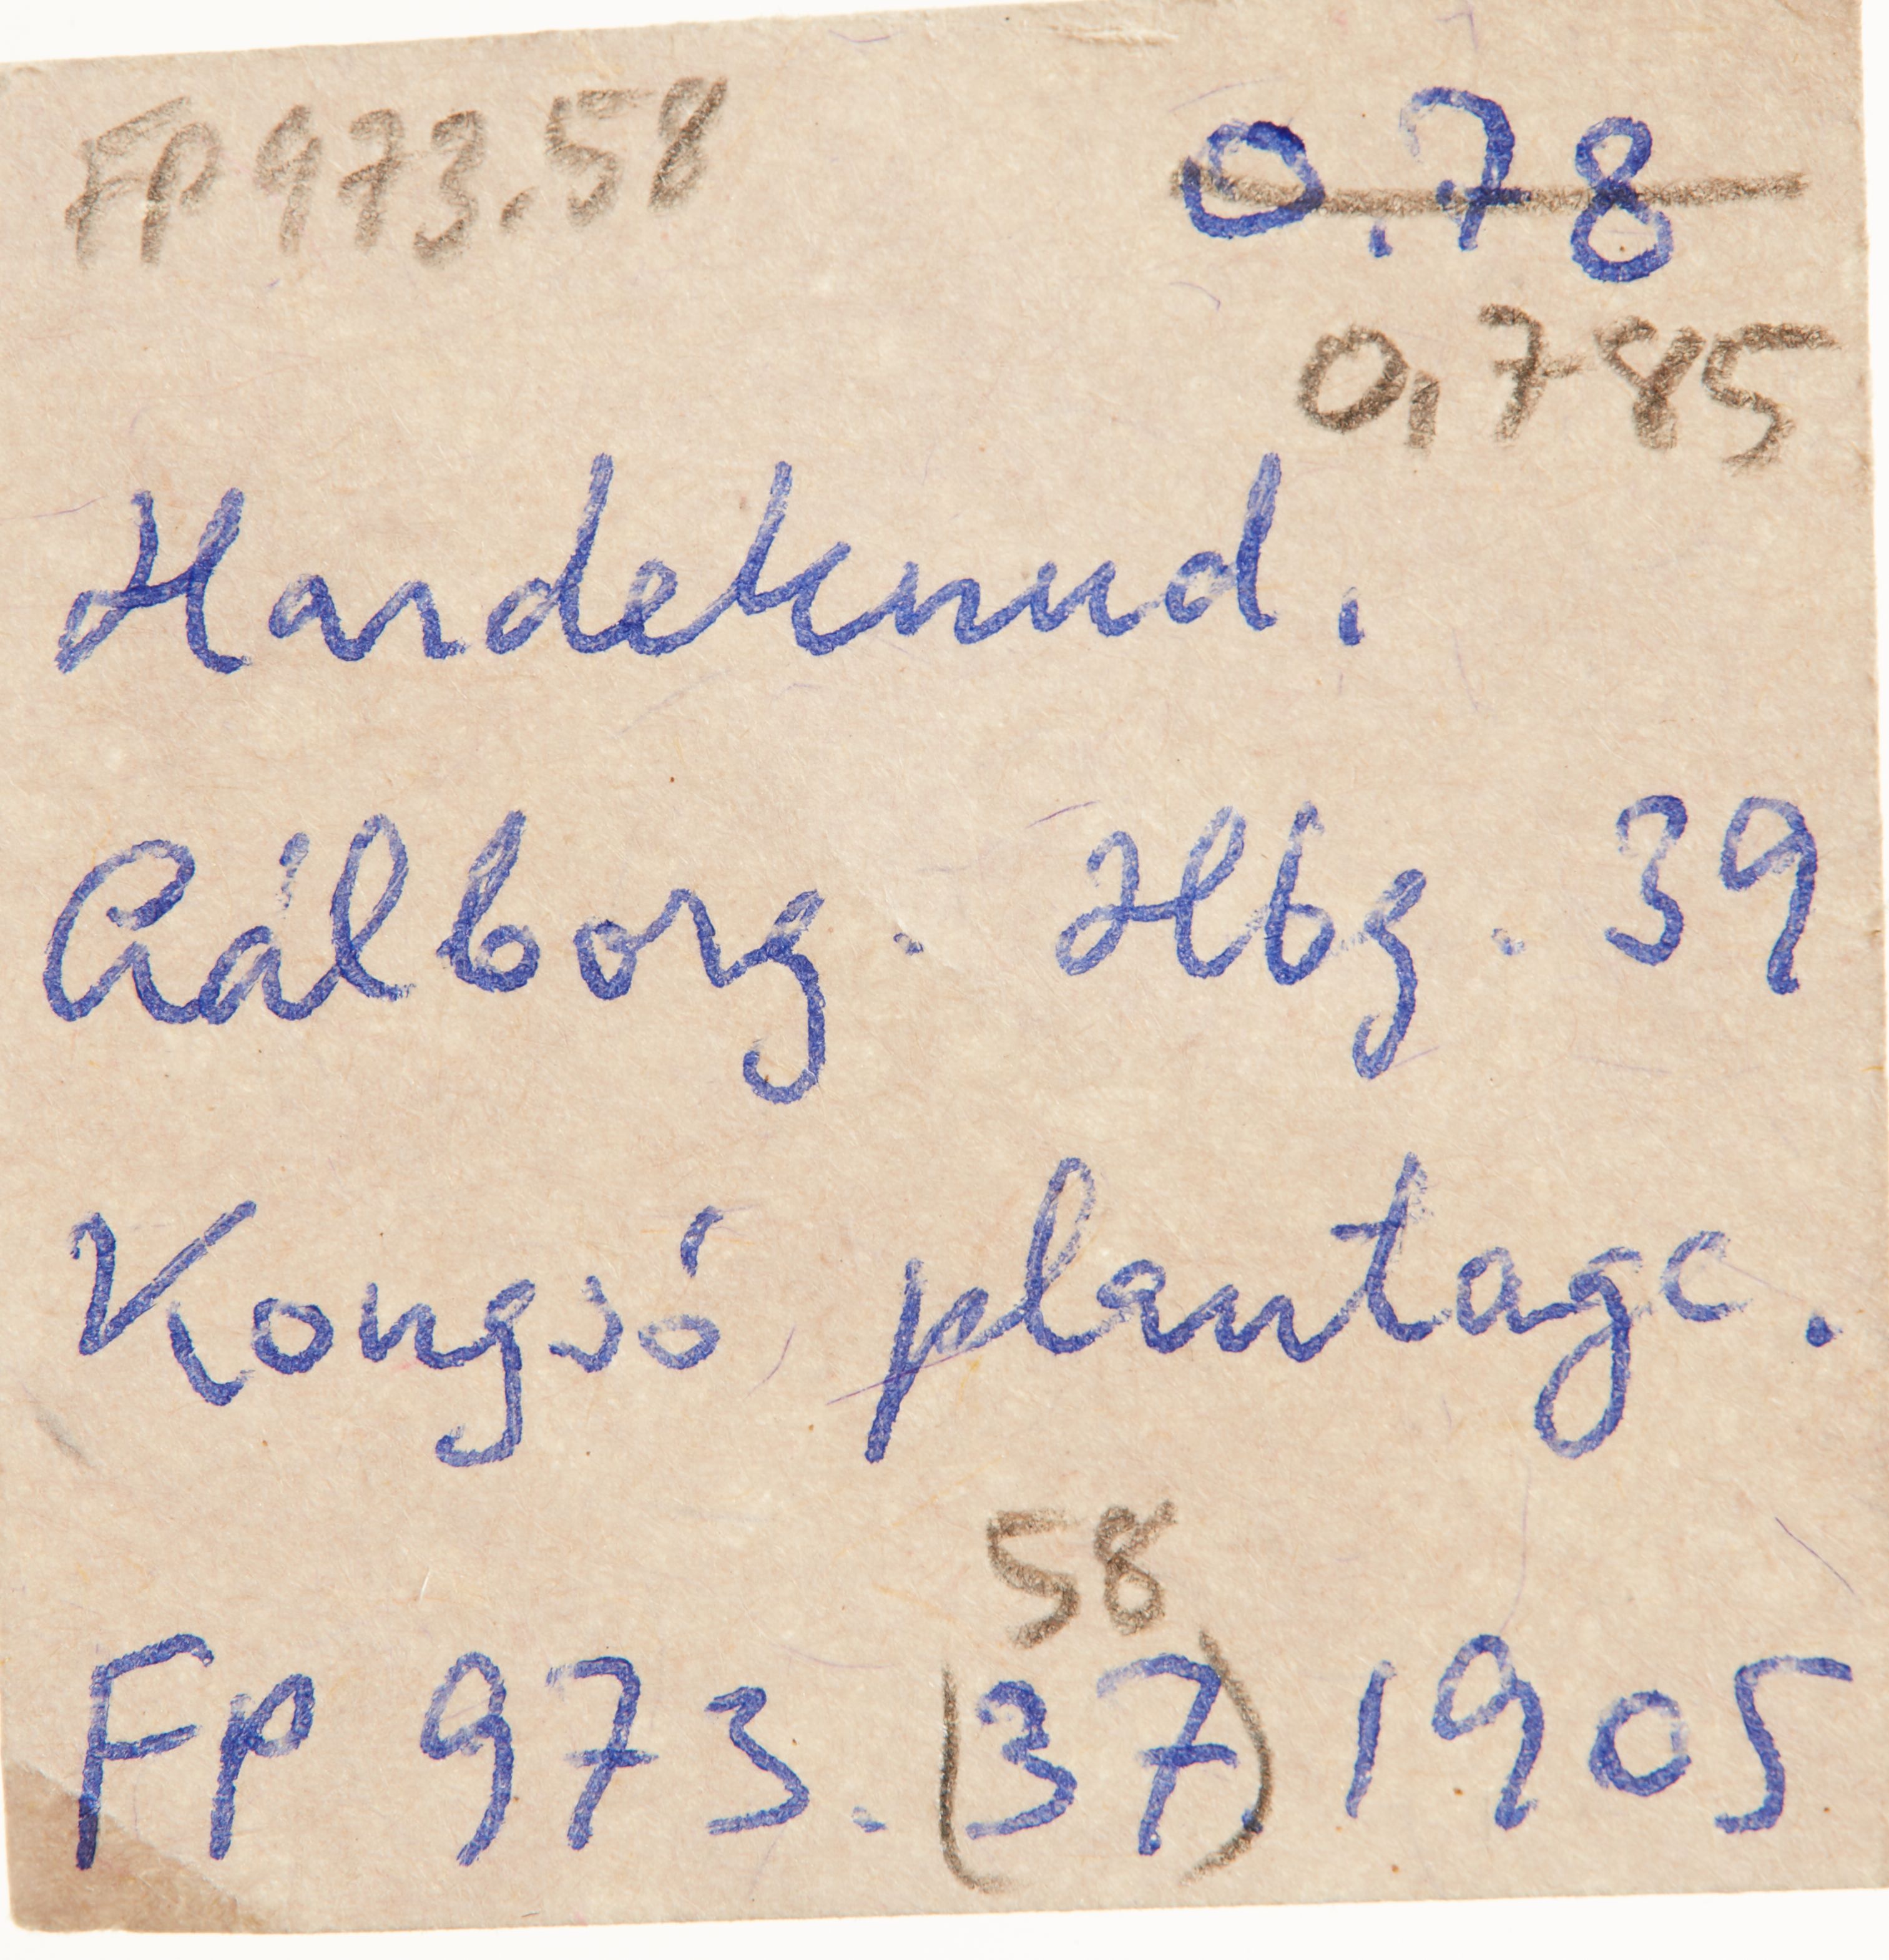 FP 973.58 0.78
0,785
Hardeknud.
Aálborg. Hbg. 39
Kongsó plantage.
58
FP 973. (37) 1905